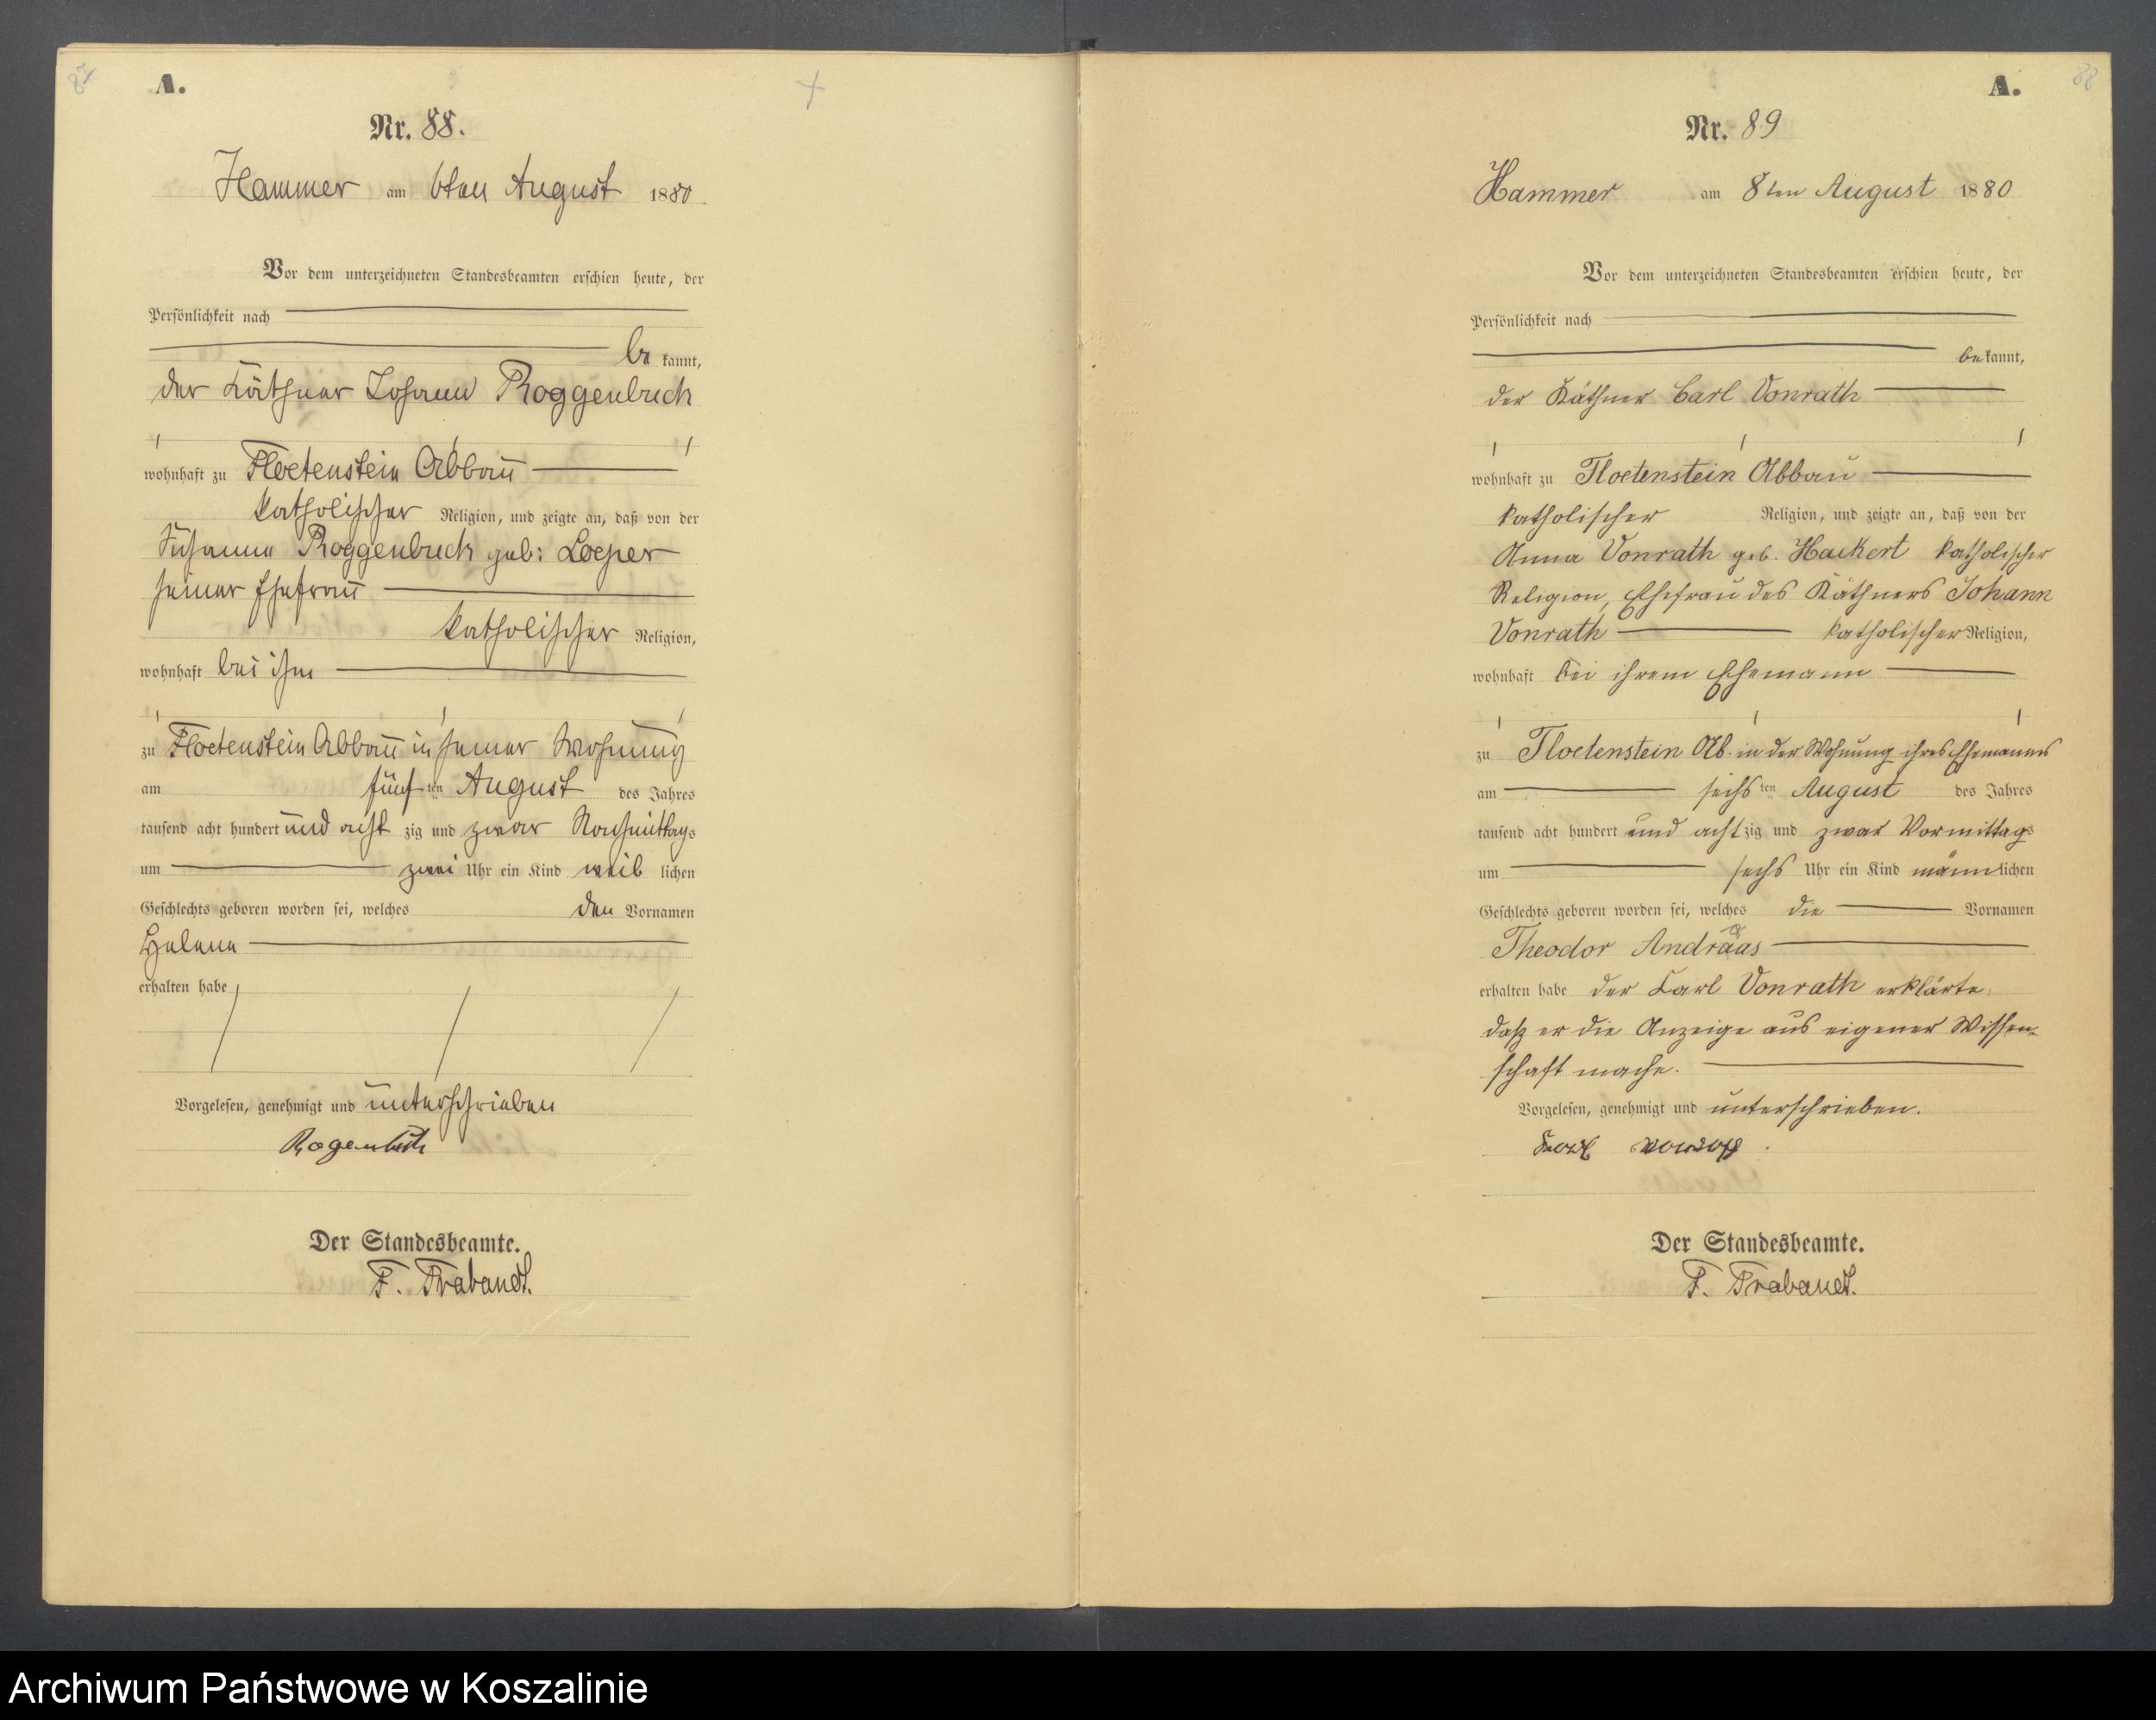 87
A.
Nr. 88.
Hammer am 6ten August 1880
Vor dem unterzeichneten Standesbeamten erschien heute, der
Persönlichkeit nach
be kannt,
der Käthner Johann Roggenbuck
wohnhaft zu Floetenstein Abbau
katholischer Religion, und zeigte an, daß von der
Susanna Roggenbuck geb: Loeper
seiner Ehefrau
katholischer Religion,
wohnhaft bei ihm
zu Floetenstein Abbau in seiner Wohnung
am fünf ten August des Jahres
tausend acht hundert und acht zig und zwar Nachmittags
um zwei Uhr ein Kind weib lichen
Geschlechts geboren worden sei, welches den Vornamen
Helena
erhalten habe
Vorgelesen, genehmigt und unterschrieben
Der Standesbeamte.
F. Trabandt.
88
A.
Nr. 89
Hammer am 8ten August 1880
Vor dem unterzeichneten Standesbeamten erschien heute, der
Persönlichkeit nach
be kannt,
der Käthner Carl Vonrath
wohnhaft zu Floetenstein Abbau
katholischer Religion, und zeigte an, daß von der
Anna Vonrath geb. Hackert katholischer
Religion, Ehefrau des Käthners Johann
Vonrath katholischer Religion,
wohnhaft bei ihrem Ehemann
zu Floetenstein Ab. in der Wohnung ihres Ehemannes
am sechs ten August des Jahres
tausend acht hundert und acht zig und zwar Vormittags
um sechs Uhr ein Kind männ lichen
Geschlechts geboren worden sei, welches die Vornamen
Theodor Andräas
erhalten habe der Carl Vonrath erklärte
daß er die Anzeige aus eigener Wissen-
schaft mache.
Vorgelesen, genehmigt und unterschrieben.
Der Standesbeamte.
F. Trabandt.
Archiwum Państwowe w Koszalinie